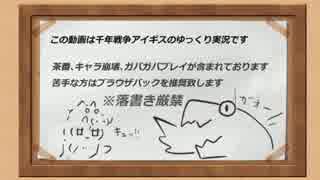 この動画は千年戦争アイギスのゆっくり実況です
茶番、キャラ崩壊、ガバガバプレイが含まれております
苦手な方はブラウザバックを推奨致します
※落書き厳禁
キュッ!!